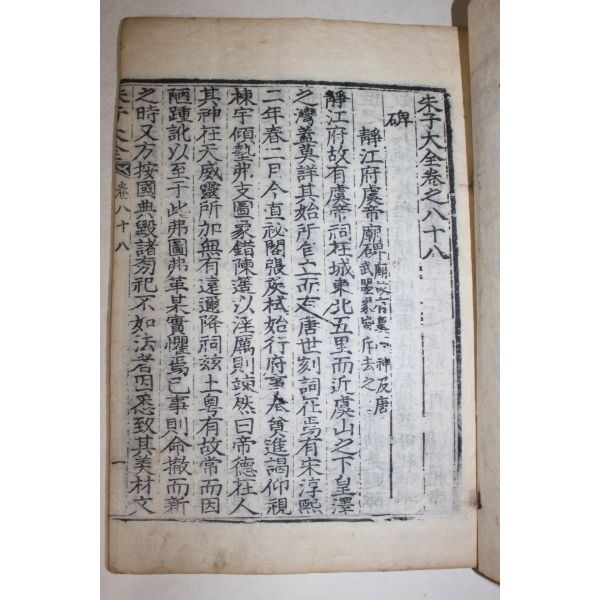 朱子大全卷之八十八
碑
靜江府虞帝廟碑 廟故有堯神及唐武曌象實斥去之
靜江府故有虞帝祠在城東北五里而近虞山之下皇澤
之灣蓋莫詳其始所自立而有唐世刻詞在焉有宋淳熙
二年春二月今直祕閣張侯栻始行府事奉奠進謁仰視
棟宇傾墊弗支圖象錯陳簉以淫厲則竦然曰帝德在人
其神在天威靈所加無有遠邇降祠茲土粤有故常而因
陋踵訛以至于此弗圖弗革某實懼焉已事則命撤而新
之時又方按國典毀諸祠祀不如法者因悉致其美材文
卷八十八
一